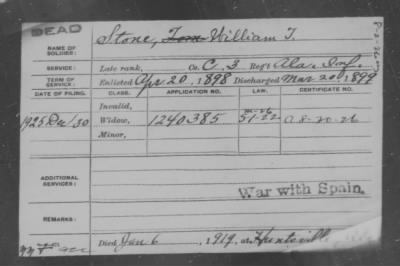 DEAD
NAME OF SOLDIER: Stone, Tom William T.
SERVICE: Late rank, Co. C, 3 Reg't Ala. Inf.
TERM OF SERVICE: Enlisted Apr 20, 1898 Discharged Mar 20, 1899
DATE OF FILING. CLASS. APPLICATION NO. LAW. CERTIFICATE NO.
Invalid,
1925 Dec/30 Widow, 1240385 51-22 A 8-20-26
Minor,
ADDITIONAL SERVICES:
War with Spain.
REMARKS:
Died Jan 6, 1919, at Huntsville